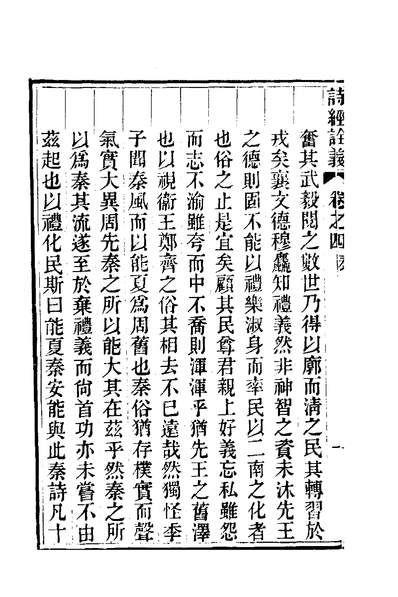 詩經詮義 卷之四 秦 一
奮其武毅閱之數世乃得以廓而淸之民其轉習於
戎矣襄文德穆麤知禮義然非神智之資未沐先王
之德則固不能以禮樂淑身而率民以二南之化者
也俗之止是宜矣顧其民尊君親上好義忘私雖怨
而志不渝雖夸而中不喬則渾渾乎猶先王之舊澤
也以視衞王鄭齊之俗其相去不已遠哉然獨怪季
子聞秦風而以能夏爲周舊也秦俗猶存樸實而聲
氣實大異周先秦之所以能大其在茲乎然秦之所
以爲秦其流遂至於棄禮義而尙首功亦未嘗不由
茲起也以禮化民斯曰能夏秦安能與此秦詩凡十